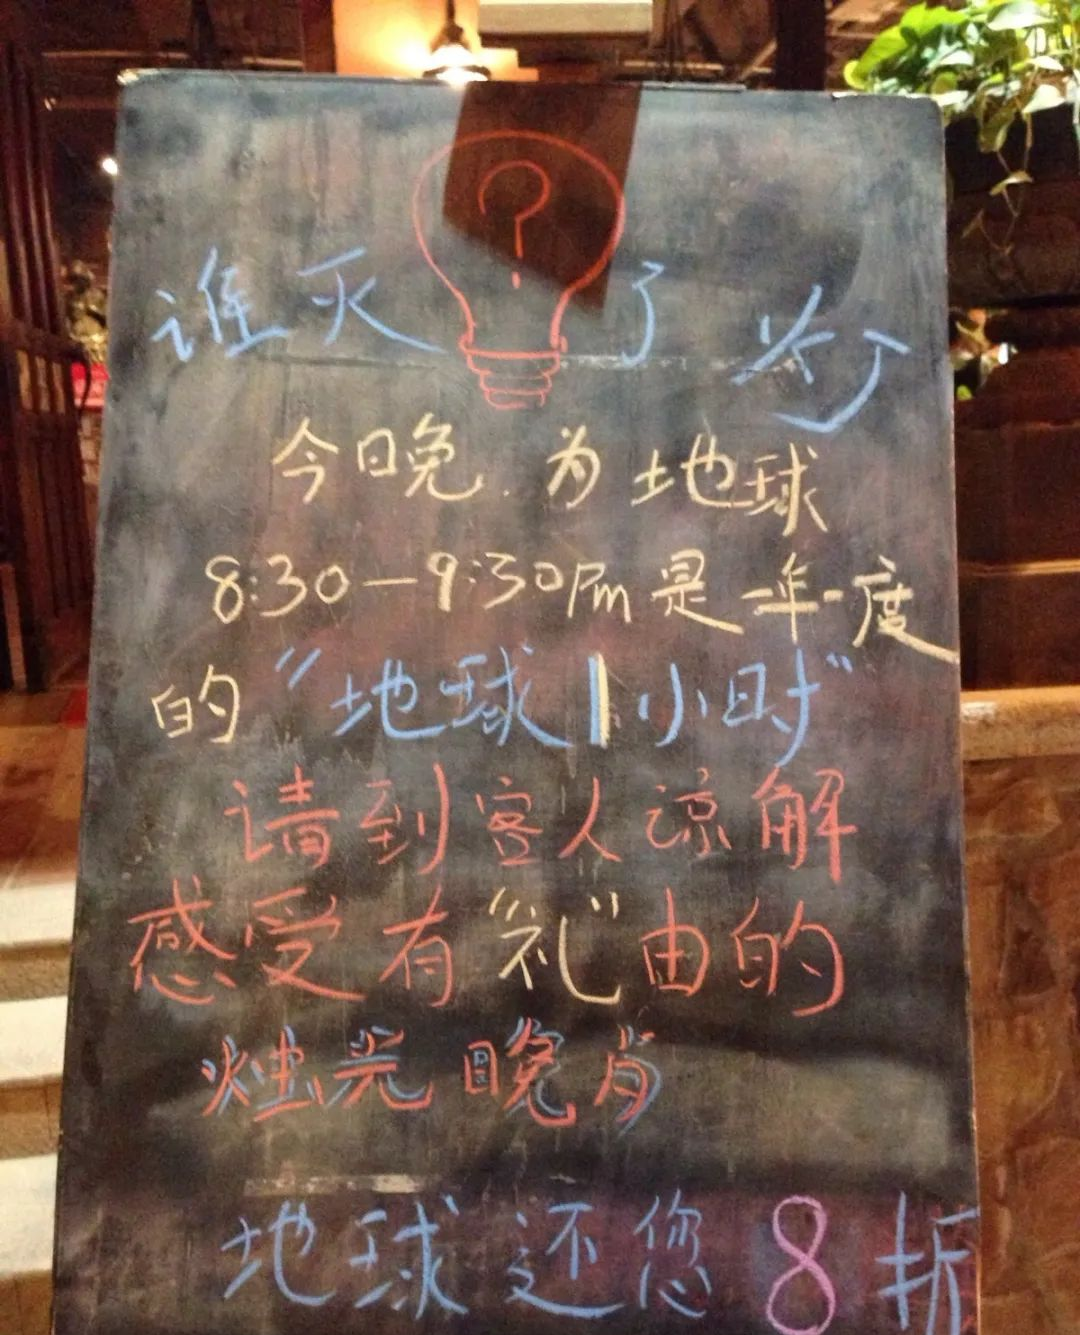 ?
谁灭了灯
今晚.为地球
8:30—9:30Pm是一年一度
的“地球1小时”
请到客人谅解
感受有“礼”由的
烛光晚肖
地球还您8折